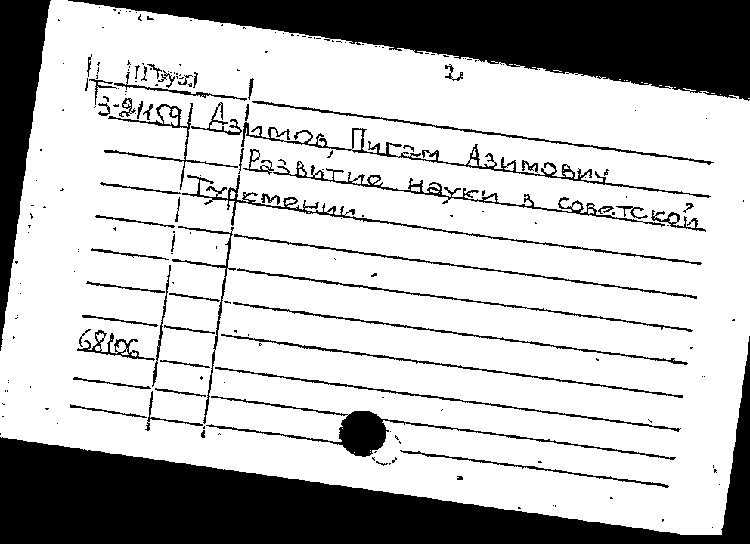 2
3-21159 Азимов, Пигам Азимович
Развитие науки в советской
Туркмении.
68106